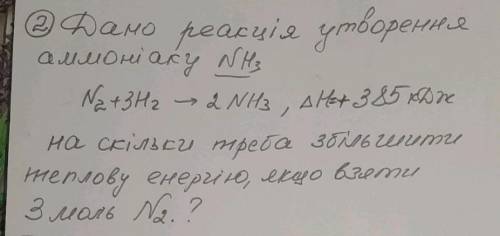 ② Дано реакція утворення
аммоніаку NH₃
N₂+3H₂ → 2NH₃, ΔH=+385 кДж
на скільки треба збільшити
теплову енергію, якщо взяти
3 моль N₂.?